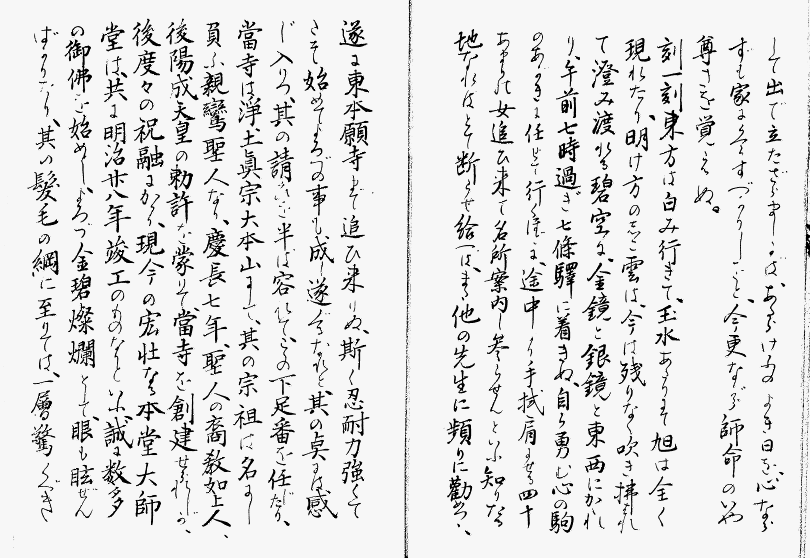 して出で立たざりしかば、あらけるのよき日を、心なら
ずも家にくすぶりしこと、今更ながら師命のいや
尊きを覚えぬ。
刻一刻東方は白み行きて、玉水あたりにて旭は全く
現れたり、明け方のしこ雲は、今は残りなく吹き拂はれ
て澄み渡れる碧空に、金鏡と銀鏡と東西にかゝれ
り、午前七時過ぎ七條驛に着きぬ、自ら勇む心の駒
のあがきに任せて行く程に、途中より手拭肩にせる四十
あまりの女追ひ来て名所案内し参らせんといふ、知りたる
地なればとて断らせ給へば、また他の先生に頻りに勸め、
遂に東本願寺まで追ひ来りぬ、斯く忍耐力強くて
こそ始めてよろづの事も成し遂ぐなれと其の点には感
じ入りつ、其の請ふに半は容れて、の下足番を任じたり、
當寺は浄土眞宗大本山にて、其の宗祖は名にし
負ふ親鸞聖人なり、慶長七年、聖人の裔教如上人、
後陽成天皇の勅許を蒙りて當寺を創建せられしが、
後度々の祝融にかゝり、現今の宏壮なる本堂大師
堂は共に明治廿八年竣工のものなりといふ、誠に数多
の御佛を始めとし、よろづ金碧燦爛として、眼も眩せん
ばかりなり、其の髪毛の綱に至りては、一層驚くべき